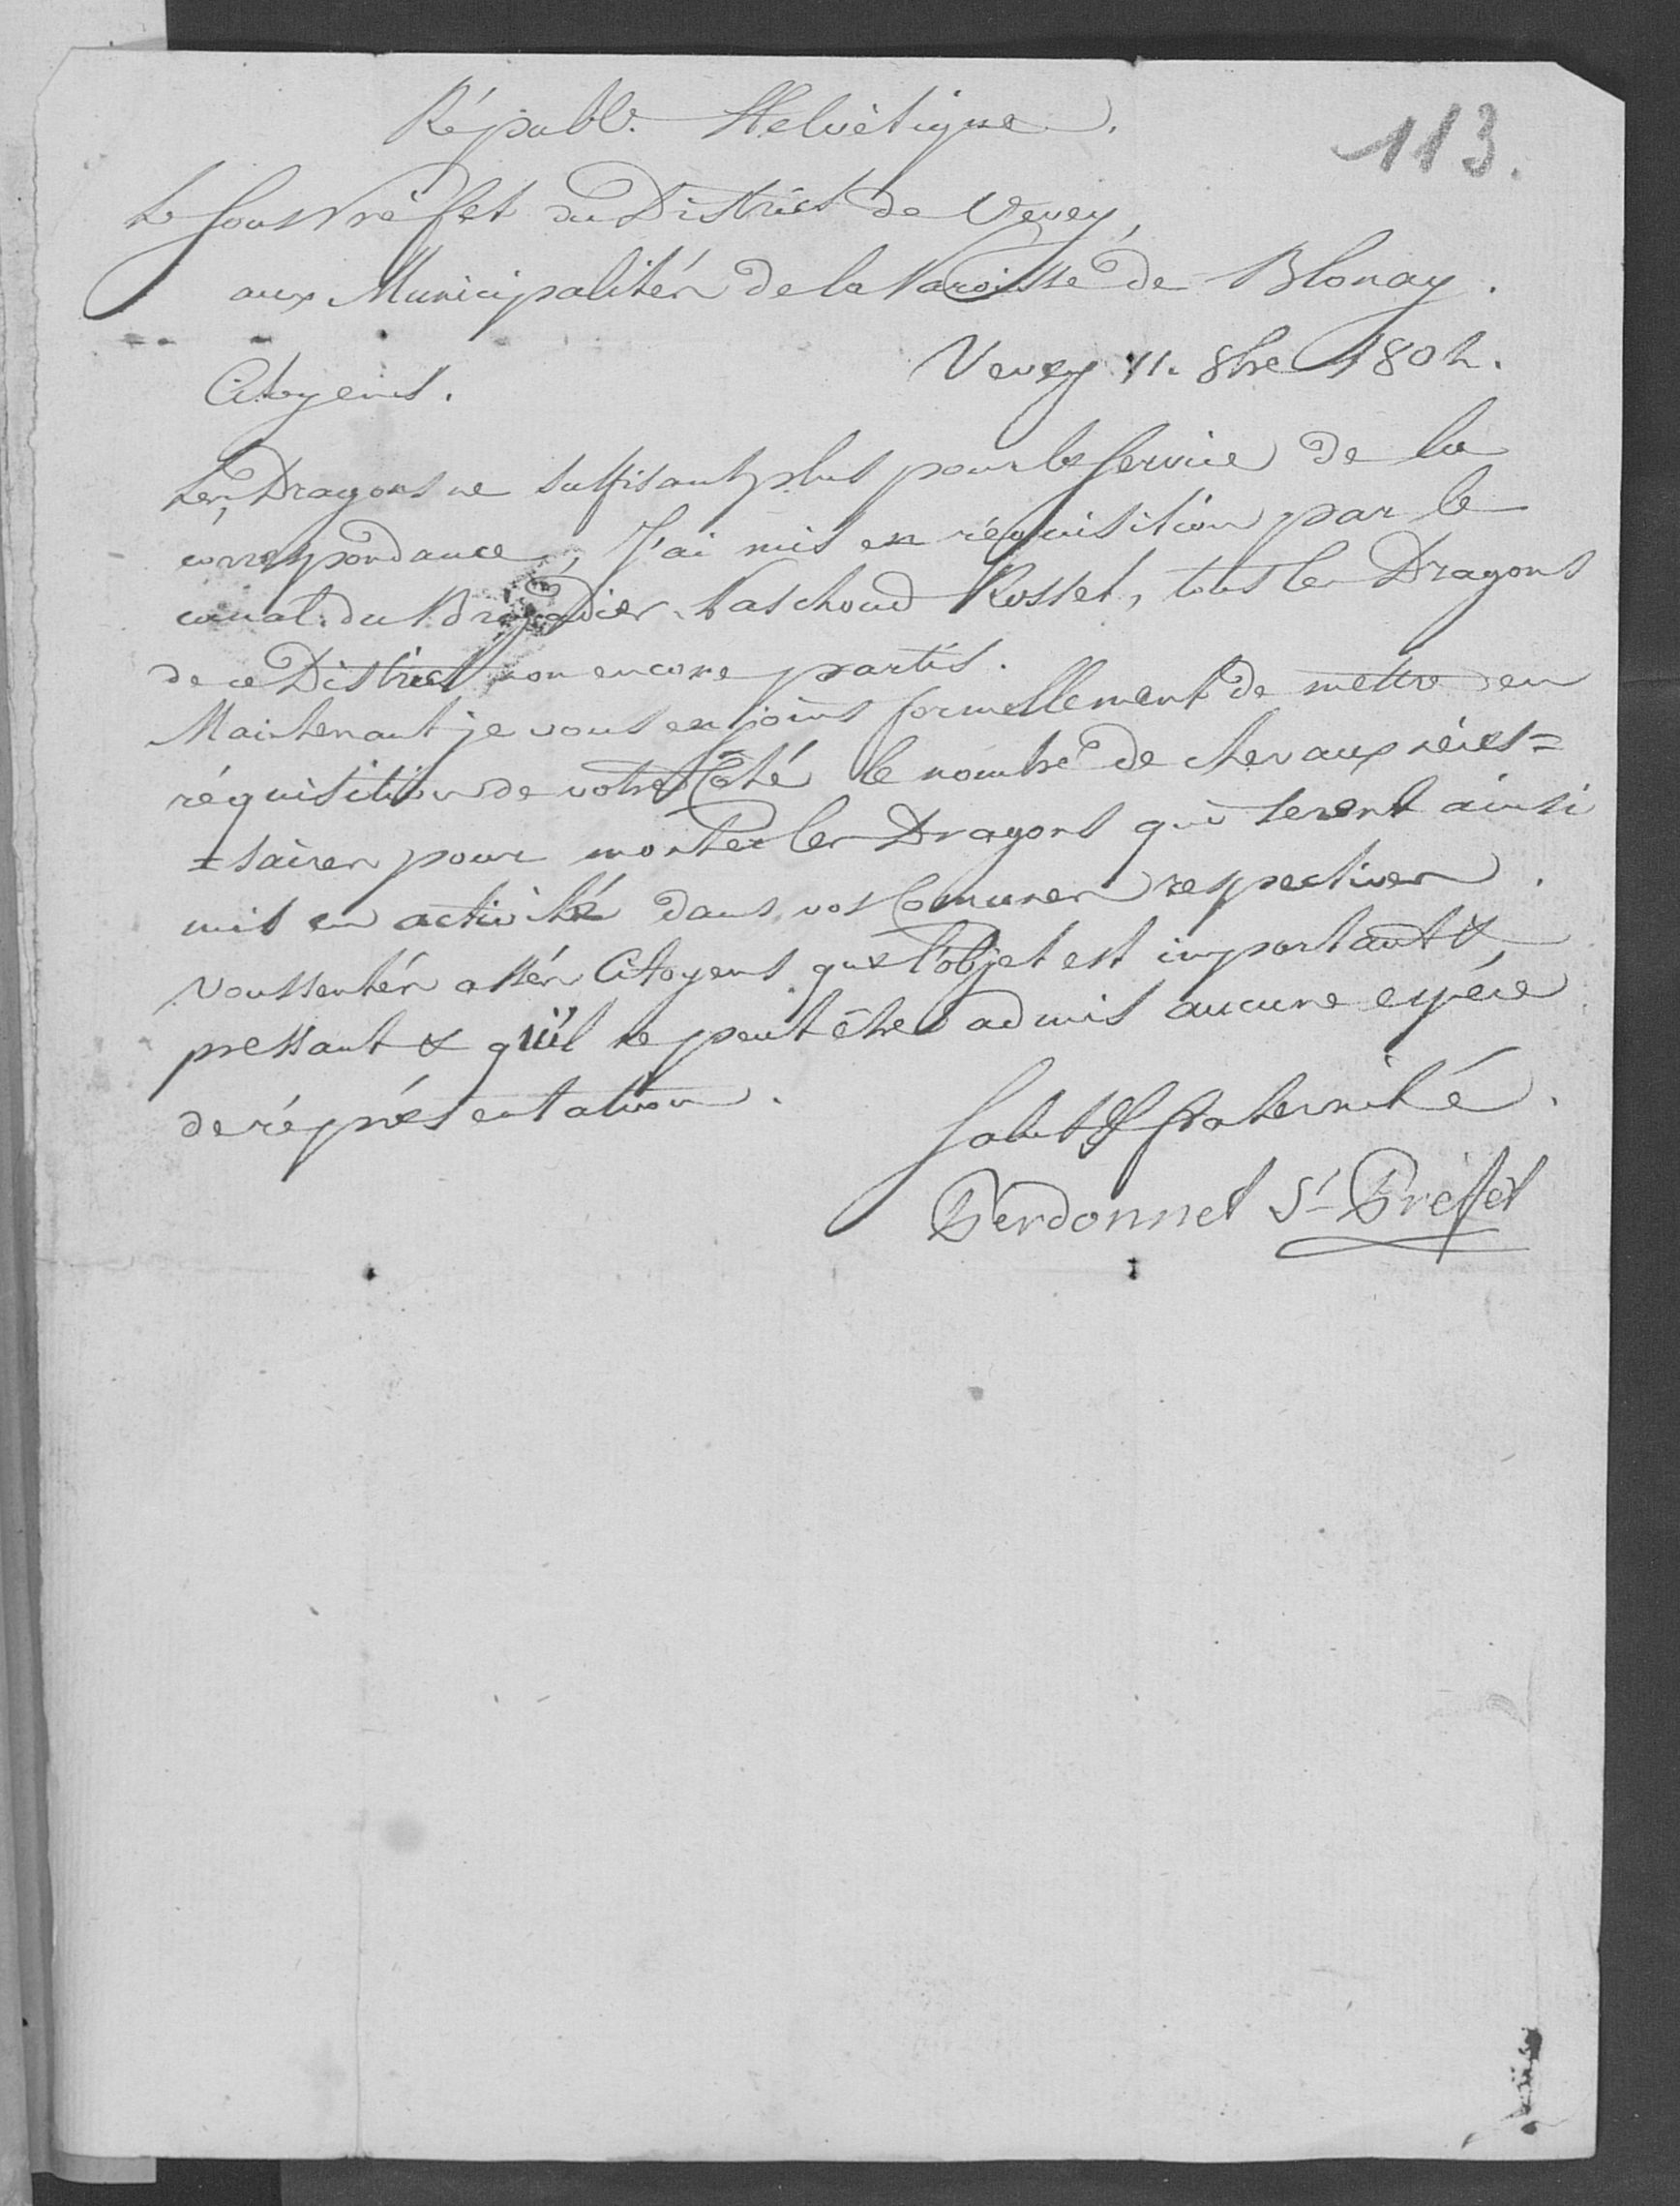 Républ. Helvétique.
113.
Le Sous Préfet du District de Vevey,
aux Municipalités de la Paroisse de Blonay.
Vevey 11. 8bre 1802.
Citoyens.
Les Dragons ne suffisant plus pour le service de la
correspondance, J'ai mis en réquisition par le
canal du Brigadier Paschoud Rosset, tous les Dragons
de ce District non encore partis.
Maintenant je vous enjoins formellement de mettre en
réquisition de votre Côté le nombre de chevaux néces=
=saires pour monter les Dragons qui seront ainsi
mis en activité dans vos Comunes respectives.
Vous sentés assés Citoyens que l'objet est important &
pressant & qu'il ne peut être admis aucune espéce
de réprésentation.
Salut & fraternité.
Perdonnet S.^t Préfet